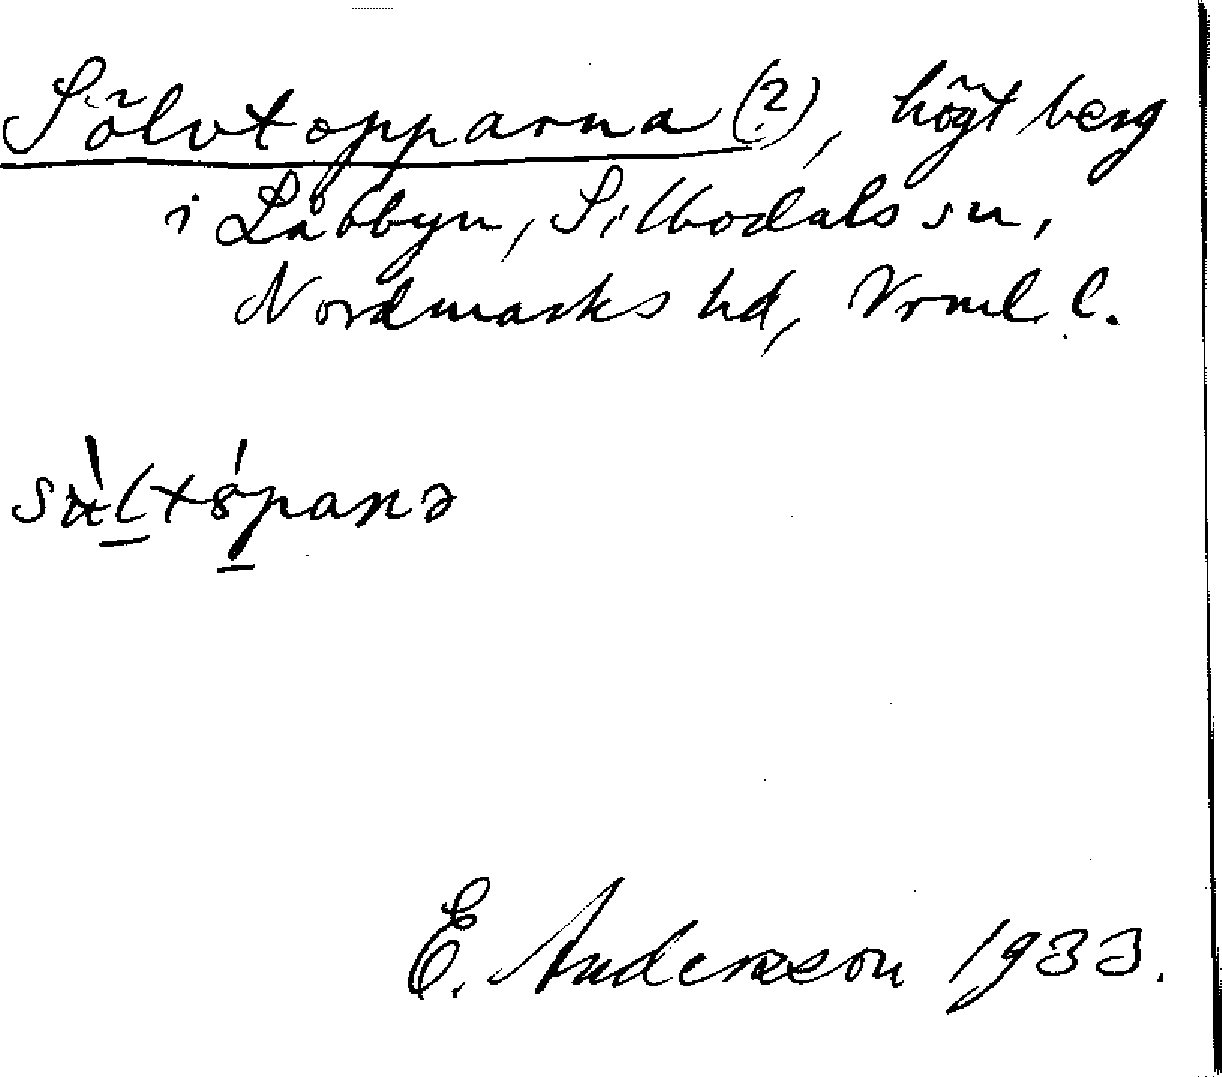 Sölvtopparna (?), högt berg
i Låbbyn, Silbodals sn,
Nordmarks hd, Vrml. l.
E. Andersson 1933.